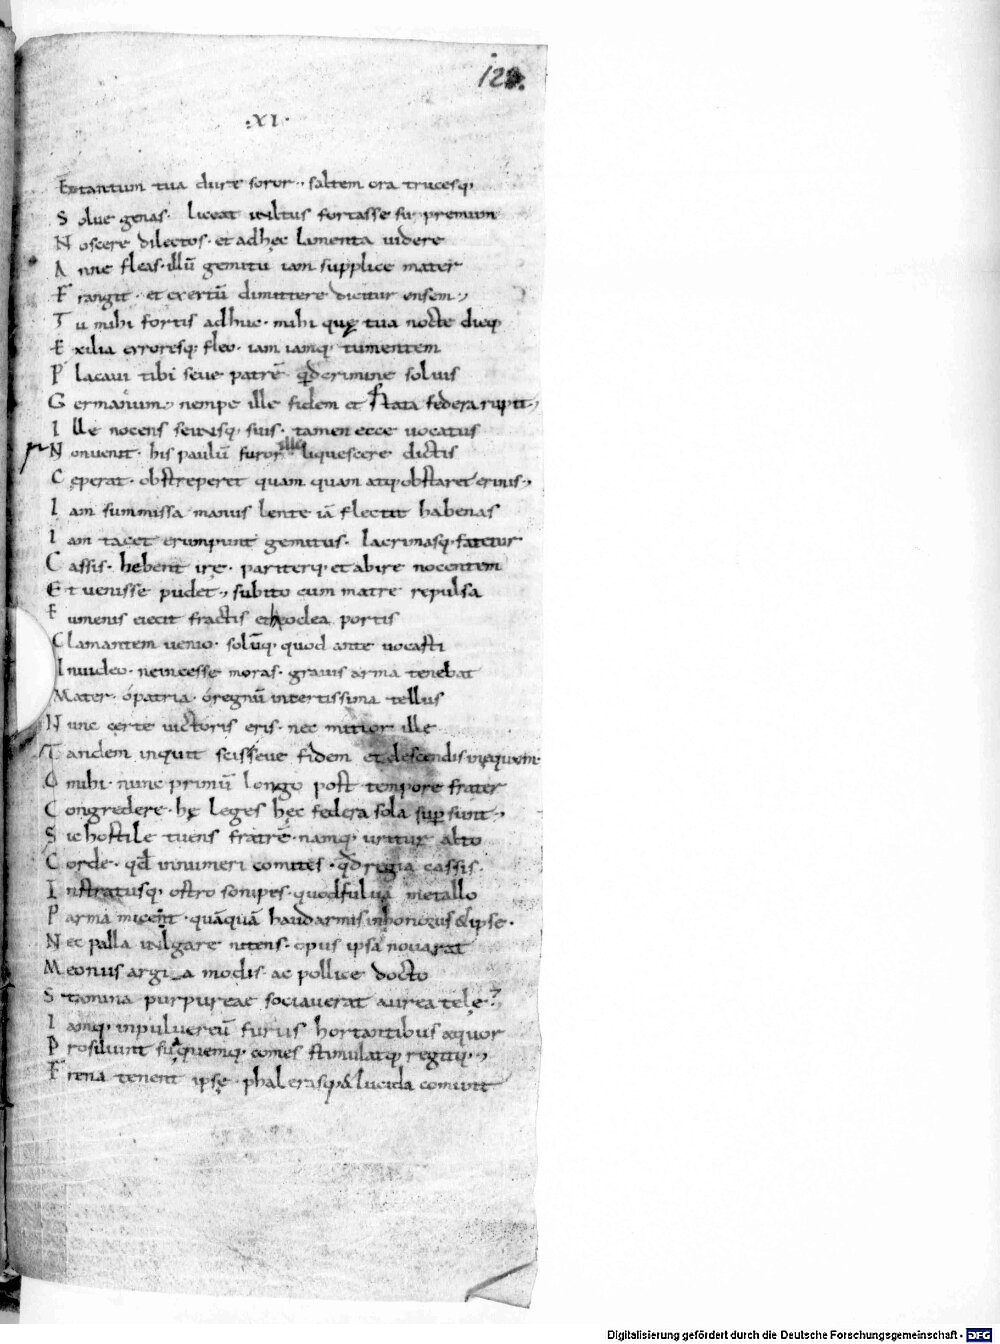 129.
·XI·
Et tantum tua dure soror, saltem ora trucesq;
Solue genas. liceat uultus fortasse supremum
Noscere dilectos. et adhęc lamenta uidere
Anne fleas. illū gemitu iam supplice mater
Frangit. et exertū dimittere dicitur ensem,
Tu mihi fortis adhuc. mihi quę tua nocte dieq;
Exilia erroresq; fleo. iam iamq; tumentem
Placaui tibi seue patrē qd crimine soluis
Germanum, nempe ille fidem et stata federa rupit,
Ille nocens seuusq; suis. tamen ecce uocatus
Non uenit. his paulū furor ille liquescere dictis
Cęperat. obstreperet quam quam atq; obstaret erinis,
Iam summissa manus lente iā flectit habenas
Iam tacet erumpunt gemitus. lacrimasq; fatetur
Cassis. hebent irę. pariterq; et abire nocentem
Et uenisse pudet, subito cum matre repulsa
Eumenis eiecit fractis etheoclea portis
Clamantem uenio. solūq; quod ante uocasti
Inuideo. neincesse moras. grauis arma tenebat
Mater. ópatria. óregnū incertissima tellus
Nunc certe uictoris eris. nec mitior ille
Tandem inquit scis seue fidem et descendis inęquom
O mihi nunc primū longo post tempore frater
Congredere. hę leges hęc federa sola sup sunt,
Sic hostile tuens fratrē. namq; uritur alto
Corde. qd innumeri comites. qd regia cassis.
Instratusq; ostro sonipes. quodfulua metallo
Parma micent. quāquā haudarmis inhonorus & ipse.
Nec palla uulgare nitens. opus ipsa nouarat
Meonus argi_a modis. ac pollice docto
Stamina purpureae sociauerat aurea telę
Iamq; inpuluereū furiis hortantibus aequor
Prosiliunt suusquemq; comes stimulatq; regitq;,
Frena tenent ipsę. phalerasq; & lucida comunt
Digitalisierung gefördert durch die Deutsche Forschungsgemeinschaft - DFG